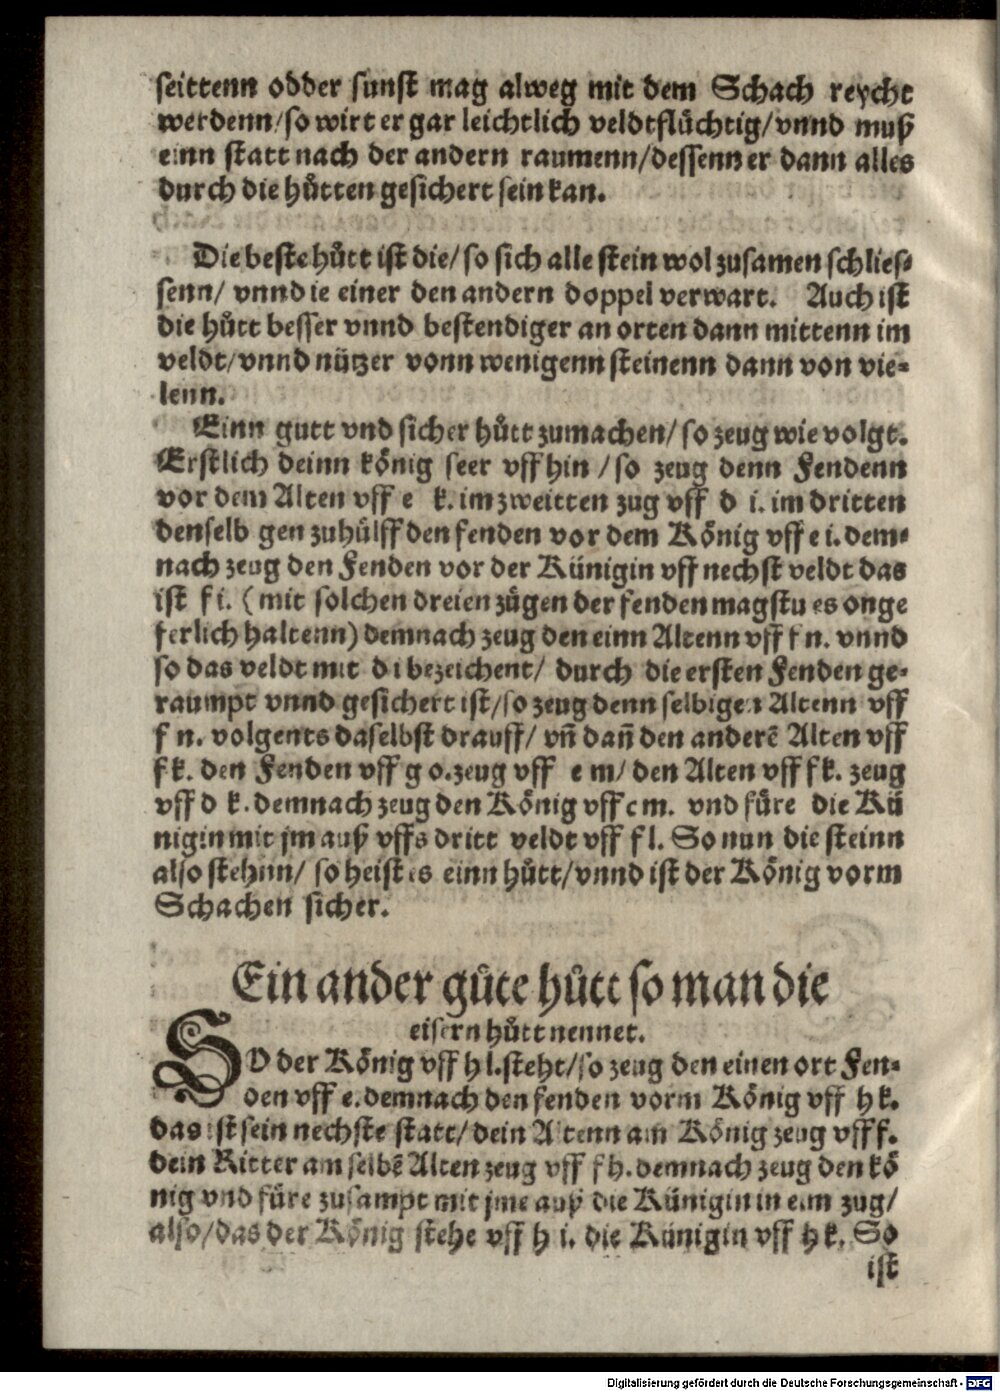 seittenn odder sunst mag alweg mit dem Schach reycht
werdenn/so wirt er gar leichtlich veldtflüchtig/vnnd muß
einn statt nach der andern raumenn/dessenn er dann alles
durch die hůtten gesichert sein kan.
Die beste hůtt ist die/so sich alle stein wol zusamen schlies-
senn/ vnnd ie einer den andern doppel verwart. Auch ist
die hůtt besser vnnd bestendiger an orten dann mittenn im
veldt/vnnd nützer vonn wenigenn steinenn dann von vie-
lenn.
Einn gutt vnd sicher hůtt zumachen/so zeug wie volgt.
Erstlich deinn könig seer vff hin /so zeug denn Fendenn
vor dem Alten vff e k. im zweitten zug vff d i. im dritten
denselb gen zuhülff den fenden vor dem König vff e i. dem-
nach zeug den Fenden vor der Künigin vff nechst veldt das
ist f i. (mit solchen dreien zügen der fenden magstu es onge
ferlich haltenn) demnach zeug den einn Altenn vff f n. vnnd
so das veldt mit d i bezeichent/ durch die ersten Fenden ge-
raumpt vnnd gesichert ist/so zeug denn selbigen Altenn vff
f n. volgents daselbst drauff/ vñ dañ den anderẽ Alten vff
f k. den Fenden vff g o. zeug vff e m/ den Alten vff f k. zeug
vff d k. demnach zeug den König vff c m. vnd füre die Kü
nigin mit jm auß vffs dritt veldt vff f l. So nun die steinn
also stehnn/ so heist es einn hütt/vnnd ist der König vorm
Schachen sicher.
Ein ander gůte hůtt so man die
eisern hůtt nennet.
SO der König vff h l. steht/so zeug den einen ort Fen-
den vff e. demnach den fenden vorm König vff h k.
das ist sein nechste statt/dein Altenn am König zeug vff f.
dein Ritter am selbẽ Alten zeug vff f h. demnach zeug den kö
nig vnd füre zusampt mit jme auß die Künigin in eim zug/
also/das der König stehe vff h i. die Künigin vff h k. So
ist
Digitalisierung gefördert durch die Deutsche Forschungsgemeinschaft - DFG